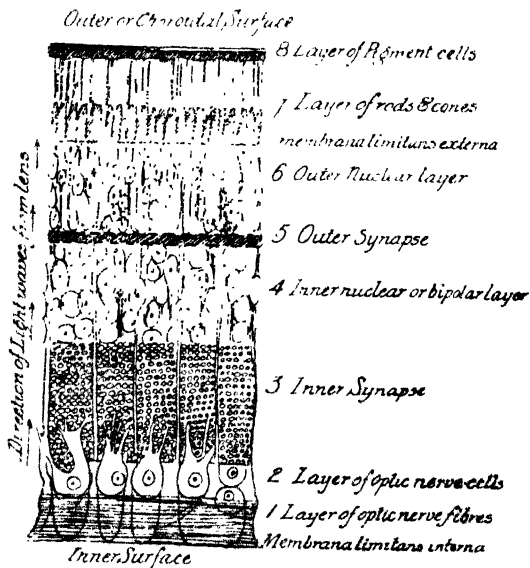 Outer or Choroidal Surface
8 Layer of Pigment cells
7 Layer of rods & cones
membrana limitans externa
6 Outer Nuclear layer
5 Outer Synapse
4 Inner nuclear or bipolar layer
3 Inner Synapse
2 Layer of optic nerve cells
1 Layer of optic nerve fibres
Membrana limitans interna
Inner Surface
Direction of Light waves from lens